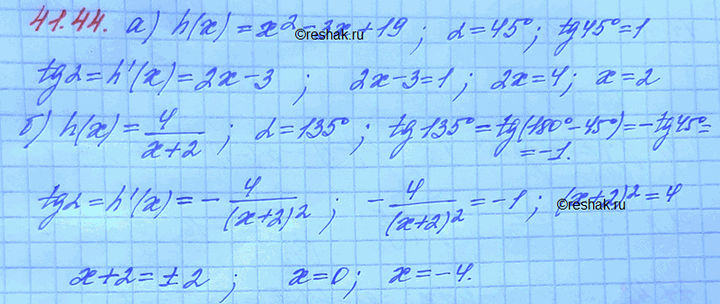 41.44. а) h(x) = x² - 3x + 19 ; α = 45° ; tg 45° = 1
©reshak.ru
tg α = h'(x) = 2x - 3 ; 2x - 3 = 1 ; 2x = 4 ; x = 2
б) h(x) = 4/(x+2) ; α = 135° ; tg 135° = tg(180° - 45°) = - tg 45° =
= -1.
tg α = h'(x) = - 4/(x+2)² ; - 4/(x+2)² = -1 ; (x+2)² = 4
©reshak.ru
x + 2 = ± 2 ; x = 0 ; x = -4.